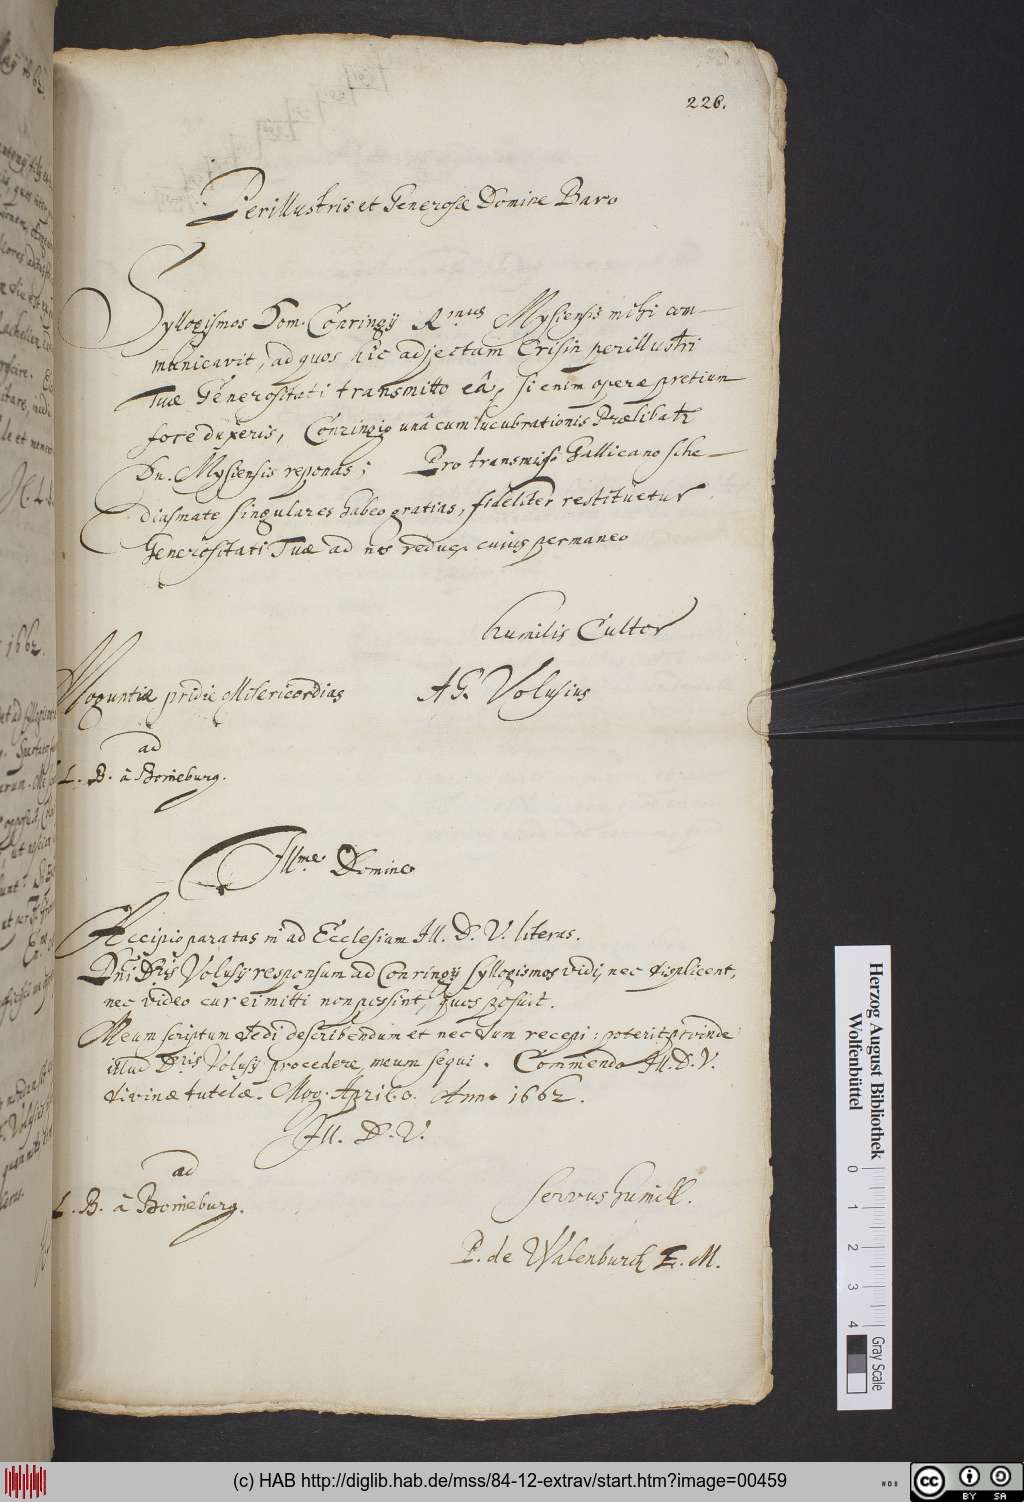 226.
Perillustris et Generose Domine Baro
Syllogismos Dom. Conringij Rmus Mysiensis mihi com-
municavit, ad quos hic adjectam Crisin perillustri
Tuæ Generositati transmitto eâ, si enim operæ pretium
fore duxeris, Conringio unâ cum lucubrationis Prælibatæ
Dn. Mysiensis reponas; Pro transmisso Gallicano sche-
diasmate singulares habeo gratias, fideliter restituetur
Generositati Tuæ ad nos reduci cuius permaneo
humilis Cultor
Moguntiæ pridie Misericordias A G. Volusius
ad
L. B. â Boineburg.
Illme Domine
Accipio paratas ad Ecclesiam Ill. D. V. literas.
Dni Dris Volusij responsum ad Conringij Syllogismos vidi, nec displicent,
nec video cur ei mitti non possint, quos posuit.
Meum scriptum dedi describendum et nec dum recepi: poterit proinde
illud Dris Volusij procedere, meum sequi. Commendo Ill. D. V.
divinæ tutelæ. Mog. Anno 1662.
Ill. D. V.
ad
L. B. â Boineburg.
servus humill.
P. de Walenburch E. M.
Herzog August Bibliothek
Wolfenbüttel
0 1 2 3 4
Gray Scale
(c) HAB http://diglib.hab.de/mss/84-12-extrav/start.htm?image=00459
cc BY SA